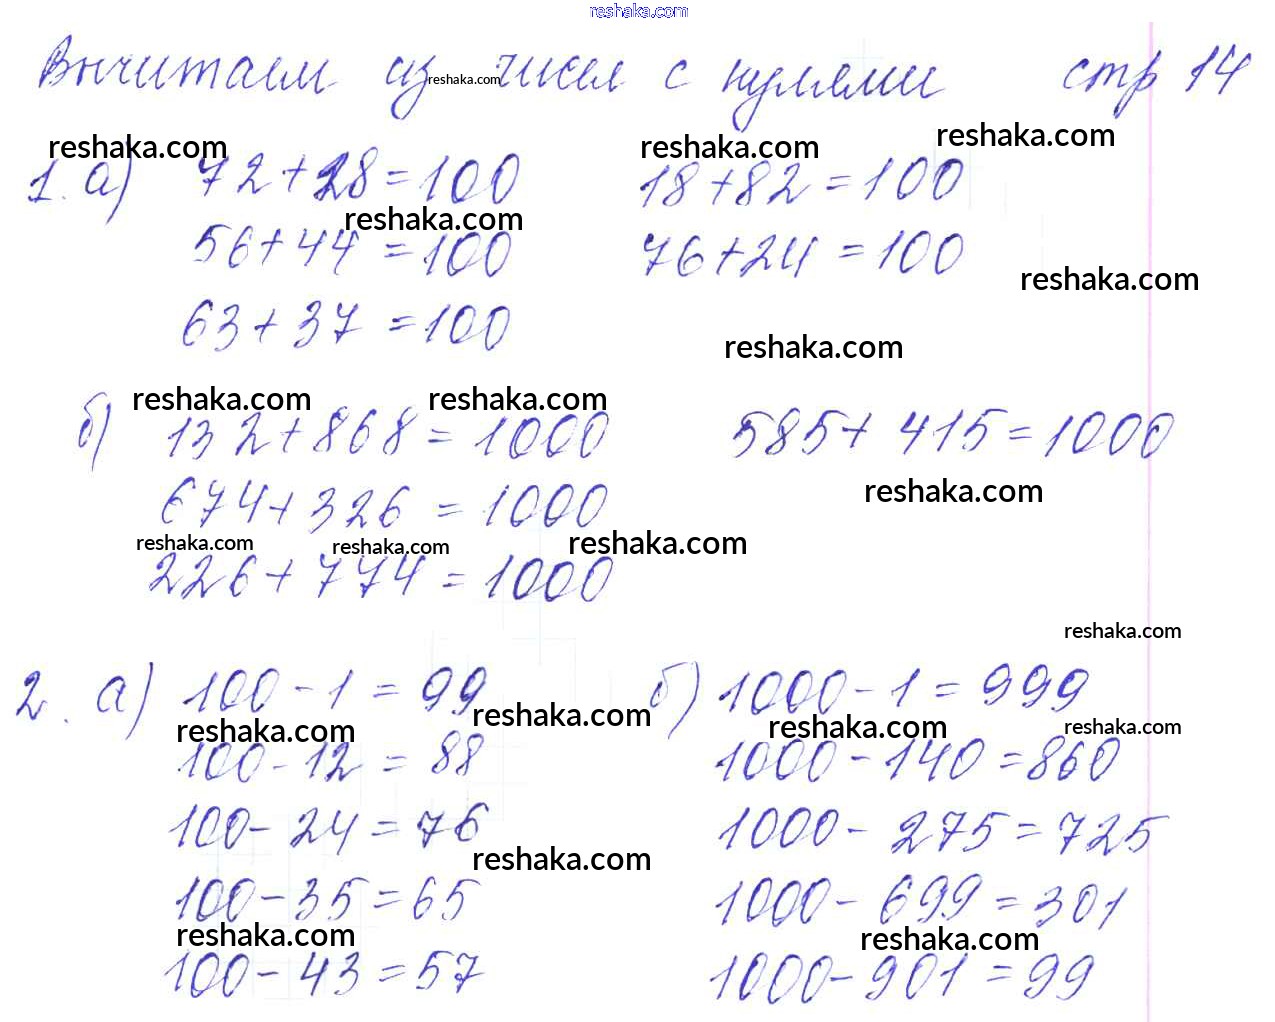 reshaka.com
Вычитаем из чисел с нулями стр 14
reshaka.com
reshaka.com reshaka.com reshaka.com
1. а) 72+28=100 18+82=100
reshaka.com
56+44=100 76+24=100
reshaka.com
63+37=100
reshaka.com
reshaka.com reshaka.com
б) 132+868=1000 585+415=1000
reshaka.com
674+326=1000
reshaka.com reshaka.com reshaka.com
226+774=1000
reshaka.com
2. а) 100-1=99 б) 1000-1=999
reshaka.com reshaka.com reshaka.com reshaka.com
100-12=88 1000-140=860
100-24=76 1000-275=725
reshaka.com
100-35=65 1000-699=301
reshaka.com reshaka.com
100-43=57 1000-901=99